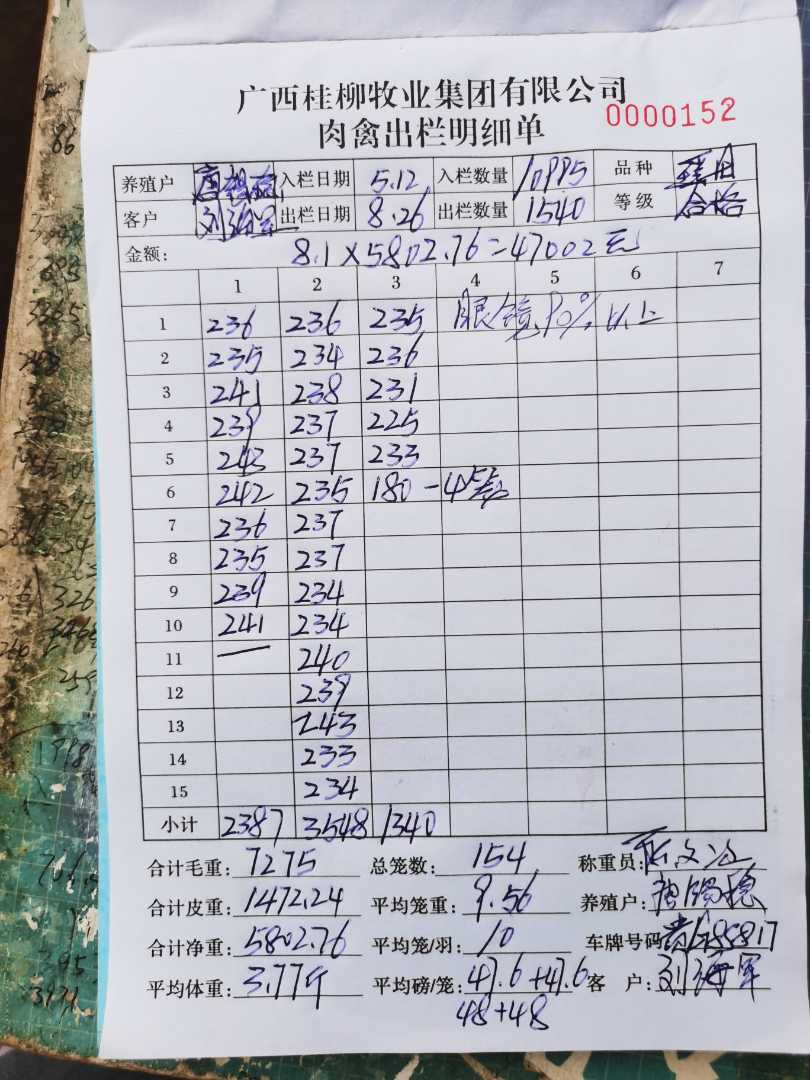 广西桂柳牧业集团有限公司
肉禽出栏明细单 0000152
养殖户 入栏日期 5.12 入栏数量 10995 品种
客户 刘海军 出栏日期 8.26 出栏数量 1540 等级 合格
金额: 8.1×5802.76=47002元
1 2 3 4 5 6 7
1 236 236 235 眼镜90%以上
2 235 234 236
3 241 238 231
4 239 237 225
5 243 237 233
6 242 235 180-4
7 236 237
8 235 237
9 239 234
10 241 234
11 — 240
12 239
13 243
14 233
15 234
小计 2387 3548 1340
合计毛重: 7275 总笼数: 154 称重员:
合计皮重: 1472.24 平均笼重: 9.56 养殖户:
合计净重: 5802.76 平均笼/羽: 10 车牌号码
平均体重: 3.77斤 平均磅/笼: 47.6+47.6 客 户: 刘海军
48+48